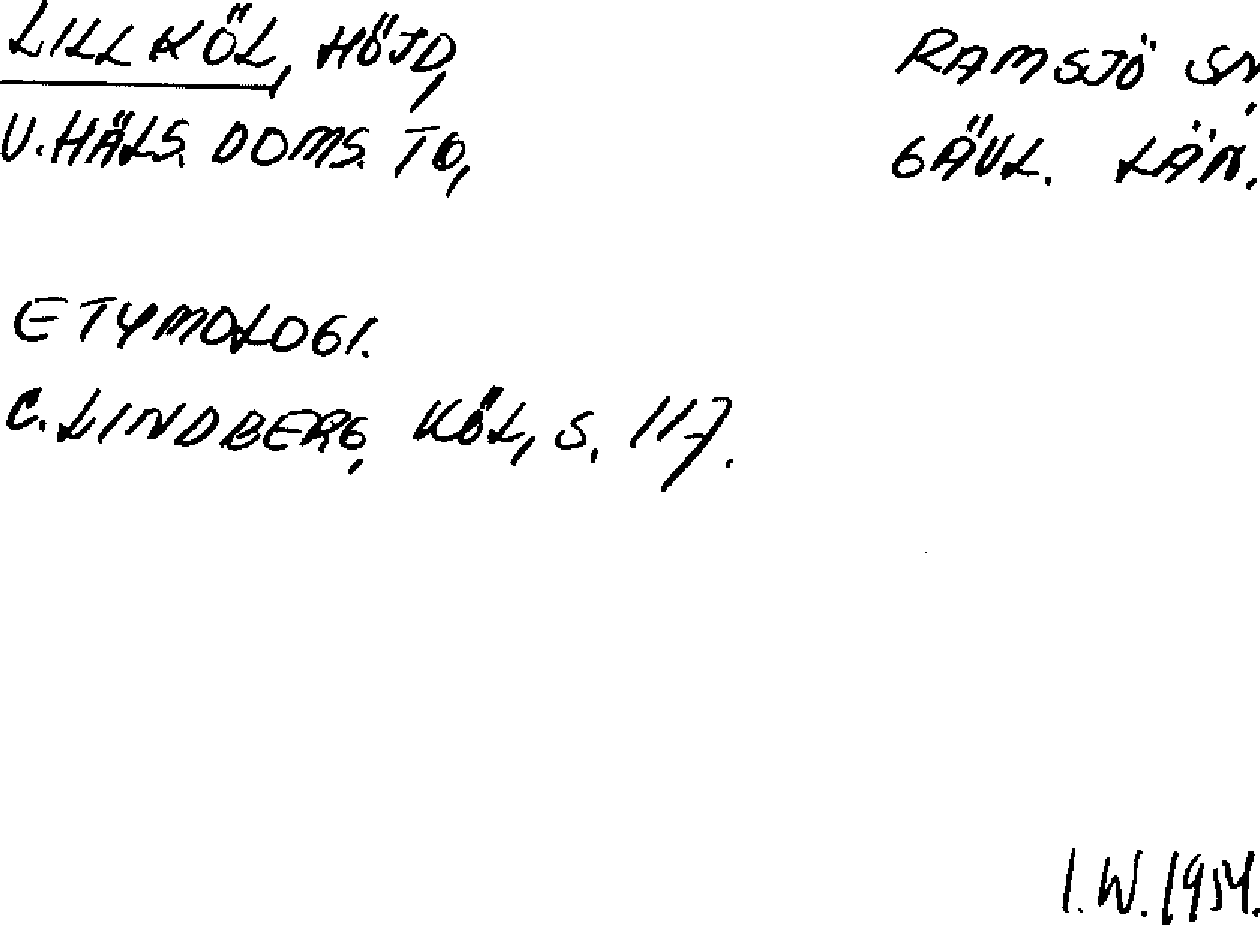 LILLKÖL, HÖJD, RAMSJÖ SN,
V. HÄLS. DOMS. TO, GÄVL. LÄN.
ETYMOLOGI.
C. LINDBERG, KÖL, S. 117.
I. W. 1954.